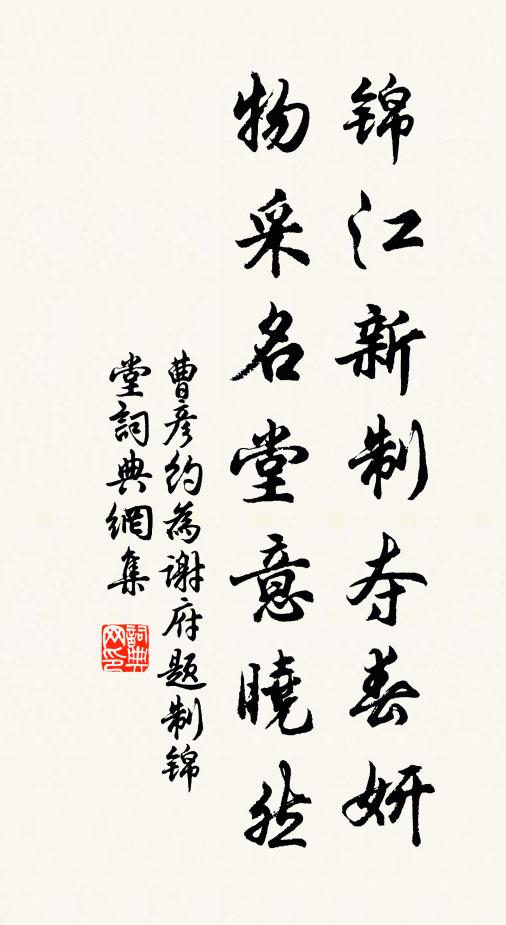 锦江新制夺春妍
物采名堂意曉然
曹彦约為谢府题制锦
堂詞典網集
詞典
网印